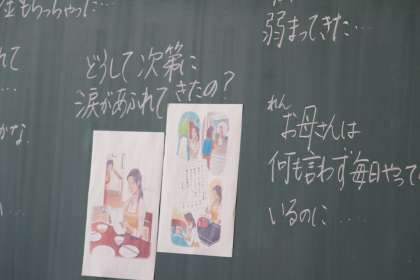 弱まってきた…
どうして次第に
涙があふれてきたの？
れん
お母さんは
何も言わず毎日やって
いるのに……
もらっちゃった…
れて
かな